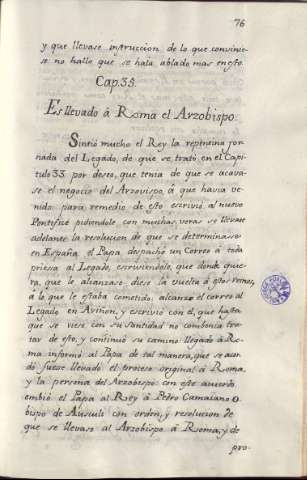 76
y que llevase instruccion de lo que convinie-
se no halle que se hala ablado mas en esto.
Cap. 35.
Es llevado á Roma el Arzobispo.
Sintió mucho el Rey la repentina jor-
nada del Legado, de que se trató en el Capi-
tulo 33 por deseo, que tenia de que se acava-
se el negocio del Arzovispo, á que havia ve-
nido para remedio de esto escrivió al nuevo
Pontifice pidiendole con muchas veras se llevase
adelante la resolucion de que se determinase
en España el Papa despachó un Correo á toda
priesa al Legado, escriviendole, que donde quie-
ra, que le alcanzase diese la vuelta á estos Reynos,
á lo que le estaba cometido; alcanzó el correo al
Legado en Aviñon, y escrivió con él, que hasta
que se viese con su Santidad no combenia tra-
tar de esto, y continuó su camino llegado á Ro-
ma informó al Papa de tal manera, que se acor-
dó fuese llevado el proceso original á Roma,
y la persona del Arzobispo: con este acuerdo
embió el Papa al Rey á Pedro Camaiano O-
bispo de Ausculi con orden, y resolucion de
que se llevase al Arzobispo á Roma, y de
pro-